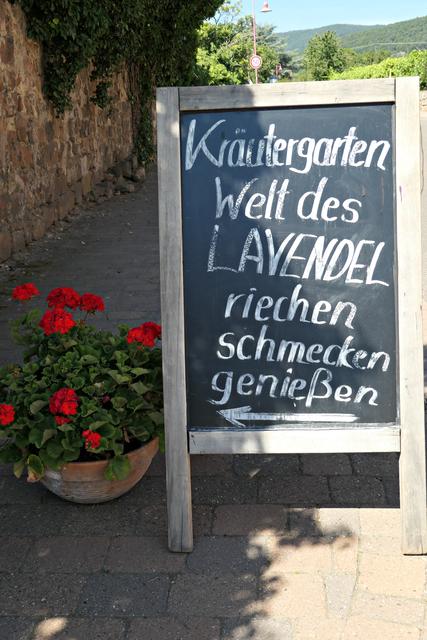 Kräutergarten
Welt des
LAVENDEL
riechen
schmecken
genießen